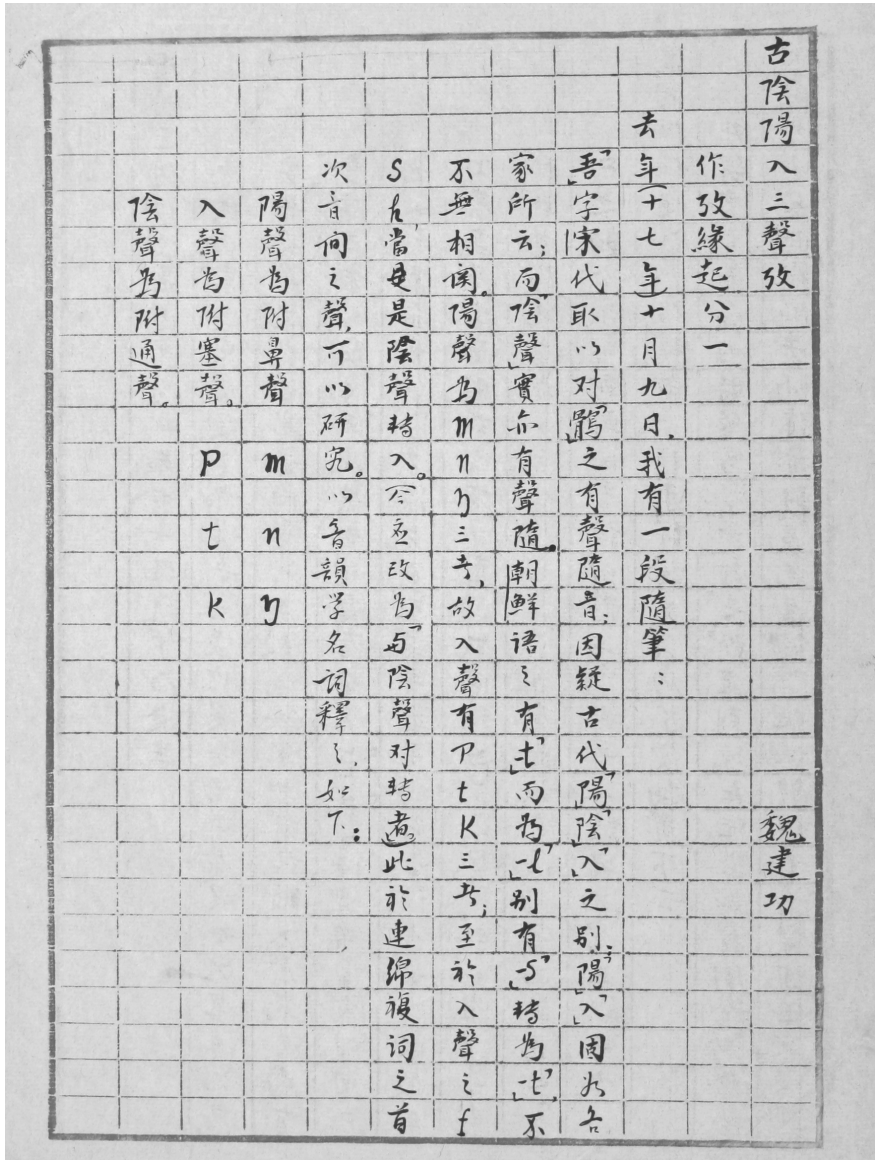 古陰陽入三聲攷 魏建功
作攷緣起分一
去年(十七年)十月九日,我有一段隨筆:
「吾」字宋代取以对「鶻」之有聲隨音;因疑古代「陽」「陰」「入」之别;「陽」「入」固如各
家所云;而「陰聲」實亦有聲隨。朝鮮語之有「-t」而為「-l」,别有「-s」轉為「-t」,不
不無相関。陽聲為m n ŋ三者,故入聲有p t k三者;至於入聲之f
s h,當是陰聲轉入。(今應改為「与陰聲对轉者」。)此於連綿複詞之首
次音间之聲,可以研究。以音韻学名詞釋之,如下:
陽聲為附鼻聲 m n ŋ
入聲為附塞聲。 p t k
陰聲為附通聲。